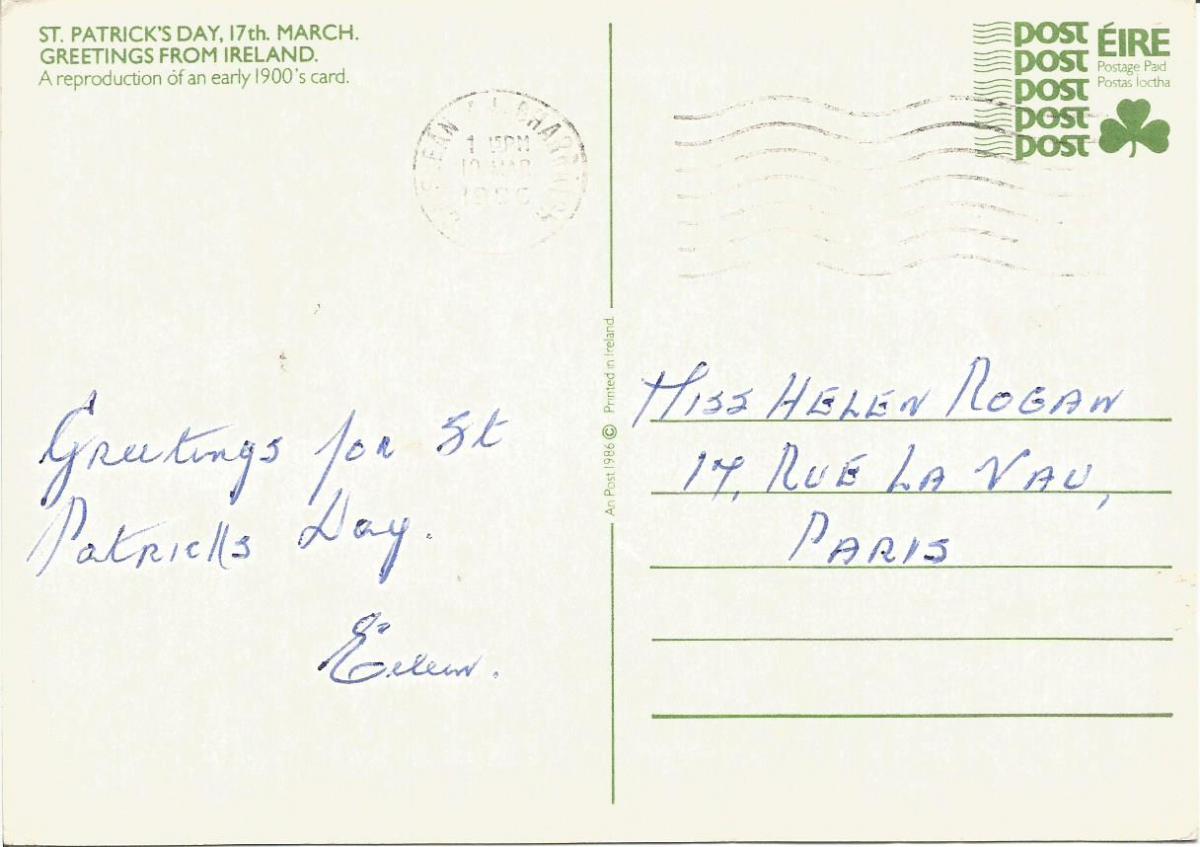 ST. PATRICK'S DAY, 17th. MARCH.
GREETINGS FROM IRELAND.
A reproduction of an early 1900's card.
POST ÉIRE
POST Postage Paid
POST Postas Íoctha
POST
POST
PM
MAR
Greetings for St
Patricks Day.
Eileen.
An Post 1986 © Printed in Ireland.
MISS HELEN ROGAN
17, RUE LA VAU,
PARIS